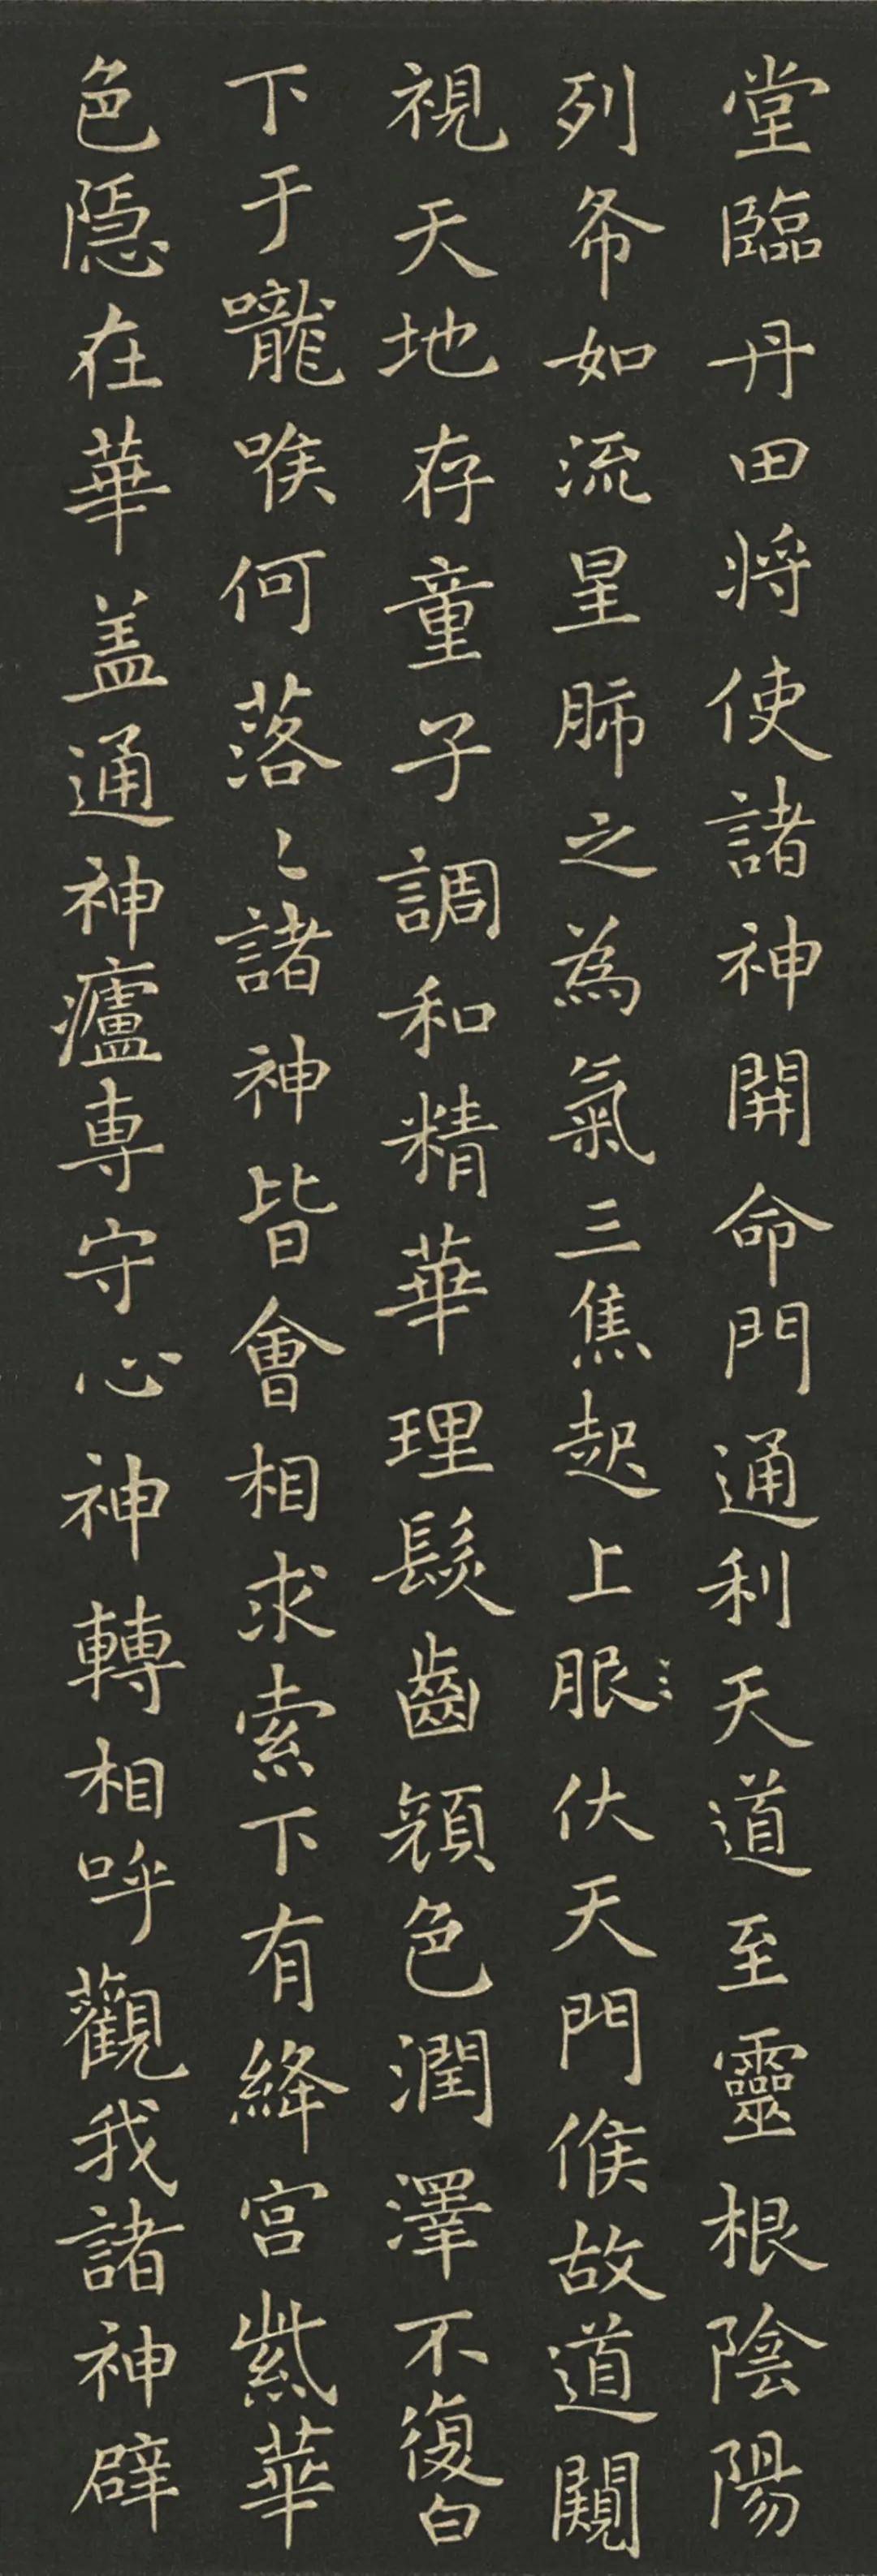 堂臨丹田将使諸神開命門通利天道至靈根陰陽
列布如流星肺之為氣三焦起上服伏天門候故道闚
視天地存童子調和精華理髮齒顔色潤澤不復白
下于嚨喉何落〻諸神皆會相求索下有絳宮紫華
色隱在華盖通神廬専守心神轉相呼觀我諸神辟